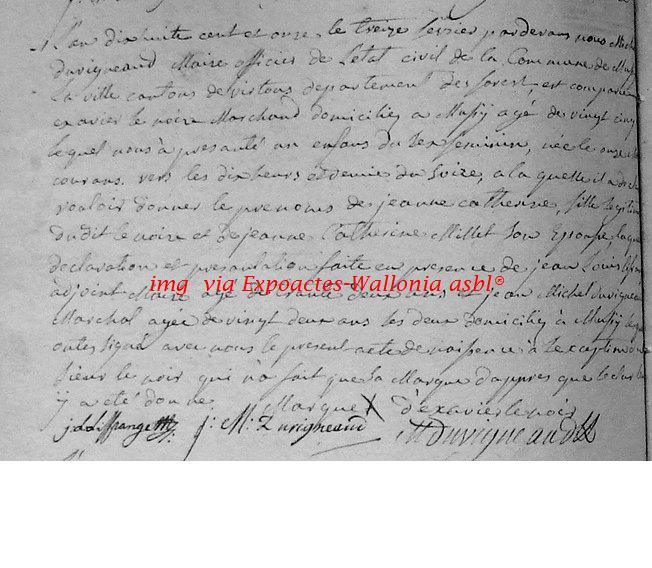 L'an dix huite cent et onze le treize fevrier pardevant nous Mich
duvigneaud Maire officier de Letat civil de la Commune de Mus
La ville cantons de virtons departement des forest est comparu
exavier le noire Marchand domicilié a Mussy agé de vingt cinq
lequel nous à presanté un enfans du sex feminin, née le onze
courans vers les dix heurs du Soire, a la quelle il a
vouloir donner le prenoms de jeanne catherine, fille legitime
dudit le noire et de jeanne Catherine Millet Son Epouse
declaration et presantation faite en presence de jean Louis
adjoint Maire agé de trante deux ans et jean Michel duvigneau
Marchal agée de vingt deux ans les deux domiciliés à Mussy
ont signé avec nous le present acte de naissence à L'exeption
Sieur le noir qui n'a fait que la Marque d'appres que
y a eté donne
Marque X d'exavier le noir
j: M: Duvigneaud M Duvigneaud
img via Expoactes-Wallonia asbl®